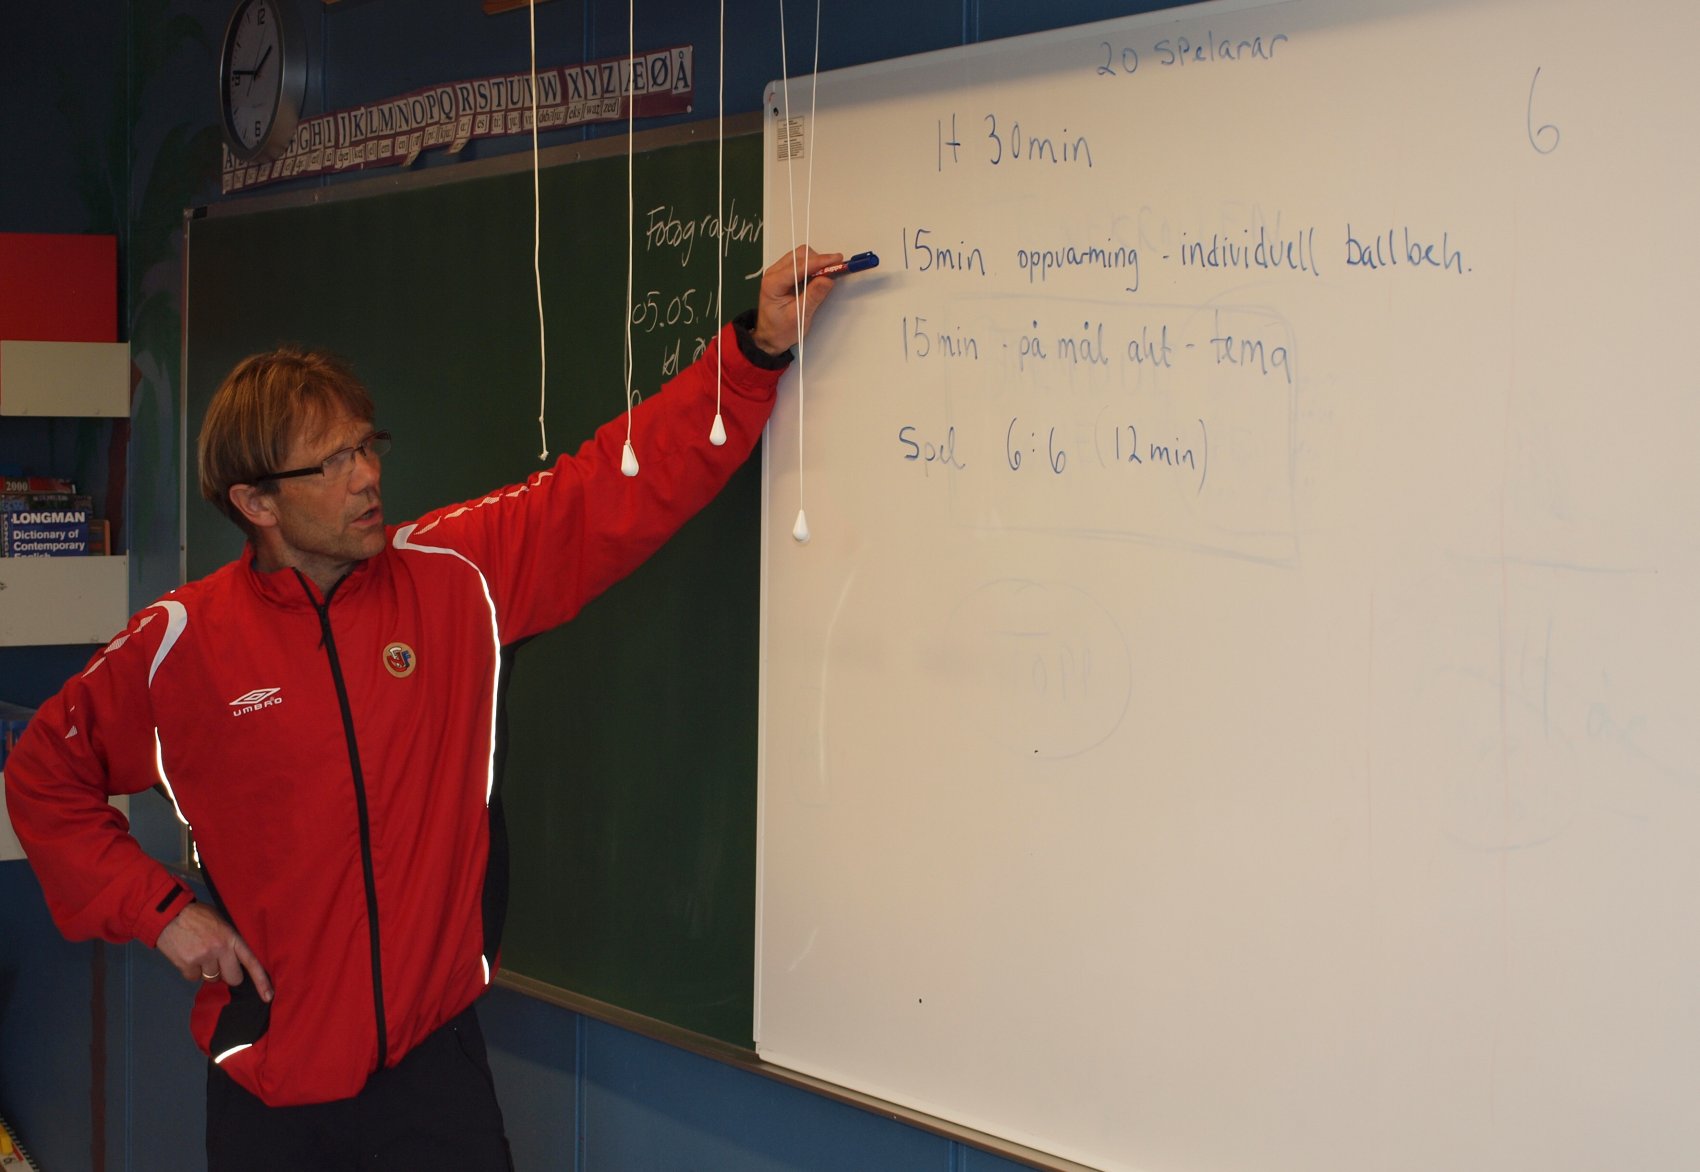 20 spelarar
6
1t 30min
15min oppvarming - individuell ballbeh.
15min - på mål akt - tema
Spel 6:6 (12min)
Fotografering
05.05.11
kl
GHIJKLMNOPQRSTUVWXYZÆØÅ
12
6
2000
LONGMAN
Dictionary of
Contemporary
English
UMBRO